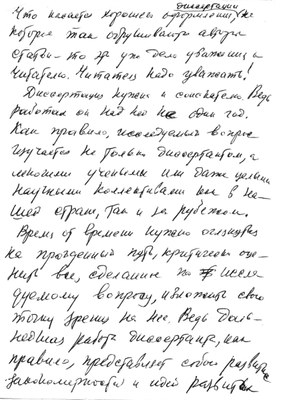 диссертации
Что касается хорошего оформления, на
которое так обрушивается автор
статьи – то это уже дело уважения к
читателю. Читателя надо уважать.
Диссертация нужна и соискателю. Ведь
работал он над ней не один год.
Как правило, исследуемый вопрос
изучается не только диссертантом, а
многими учеными или даже целыми
научными коллективами как в на-
шей стране, так и за рубежом.
Время от времени нужно оглянуться
на пройденный путь, критически оце-
нить все, сделанное по иссле-
дуемому вопросу, изложить свою
точку зрения на нее. Ведь даль-
нейшая работа диссертанта, как
правило, представляет собой развитие
закономерностей и идей развитых